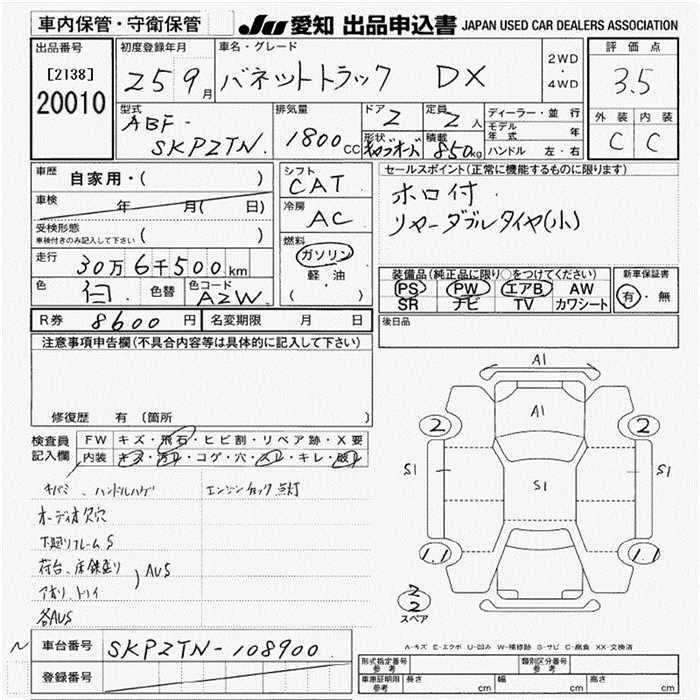 車内保管・守衛保管
JU 愛知 出品申込書 JAPAN USED CAR DEALERS ASSOCIATION
出品番号
[2138]
20010
初度登録年月
25 9月
車名・グレード
バネットトラック DX
2WD
・
4WD
評価点
3.5
外装 内装
C C
型式
ABF-
SKP2TN
排気量
1800cc
ドア
2
定員
2人
形状
積載
850kg
ディーラー・並行
モデル年式 年
ハンドル 左・右
車歴
自家用・( )
車検
年 月( 日)
受検形態
車検付きのみ記入して下さい ( )
走行
30万6千500km
色
白
色替
色コード
A2W
シフト
CAT
冷房
AC
燃料
ガソリン
軽・油
( )
セールスポイント(正常に機能するものに限ります)
ホロ付
リヤーダブルタイヤ(小)
装備品(純正品に限り○をつけてください)
PS PW エアB AW
SR ナビ TV カワシート
新車保証書
有・無
後日品
R券 8600円
名変期限 月 日
注意事項申告欄(不具合内容等は具体的に記入して下さい)
修復歴 有 〔箇所 〕
検査員
記入欄
FW キズ・飛石・ヒビ割・リペア跡・X要
内装 キズ・汚れ・コゲ・穴・スレ・キレ・破れ
ハンドルハゲ
エンジンチェック点灯
オーディオ欠穴
下廻りフレームS
荷台、床錆塗り
アオリ、トリイ
AUS
各AUS
A1
A1
2
2
S1
S1
S1
1.1
1.1
2
2
スペア
A-キズ E-エクボ U-凹み W-補修跡 S-サビ C-腐食 XX-交換済
車台番号
SKP2TN-108900
登録番号
型式指定番号
参考
類別区分番号
参考
車庫証明用
参考
長さ cm
幅 cm
高さ cm